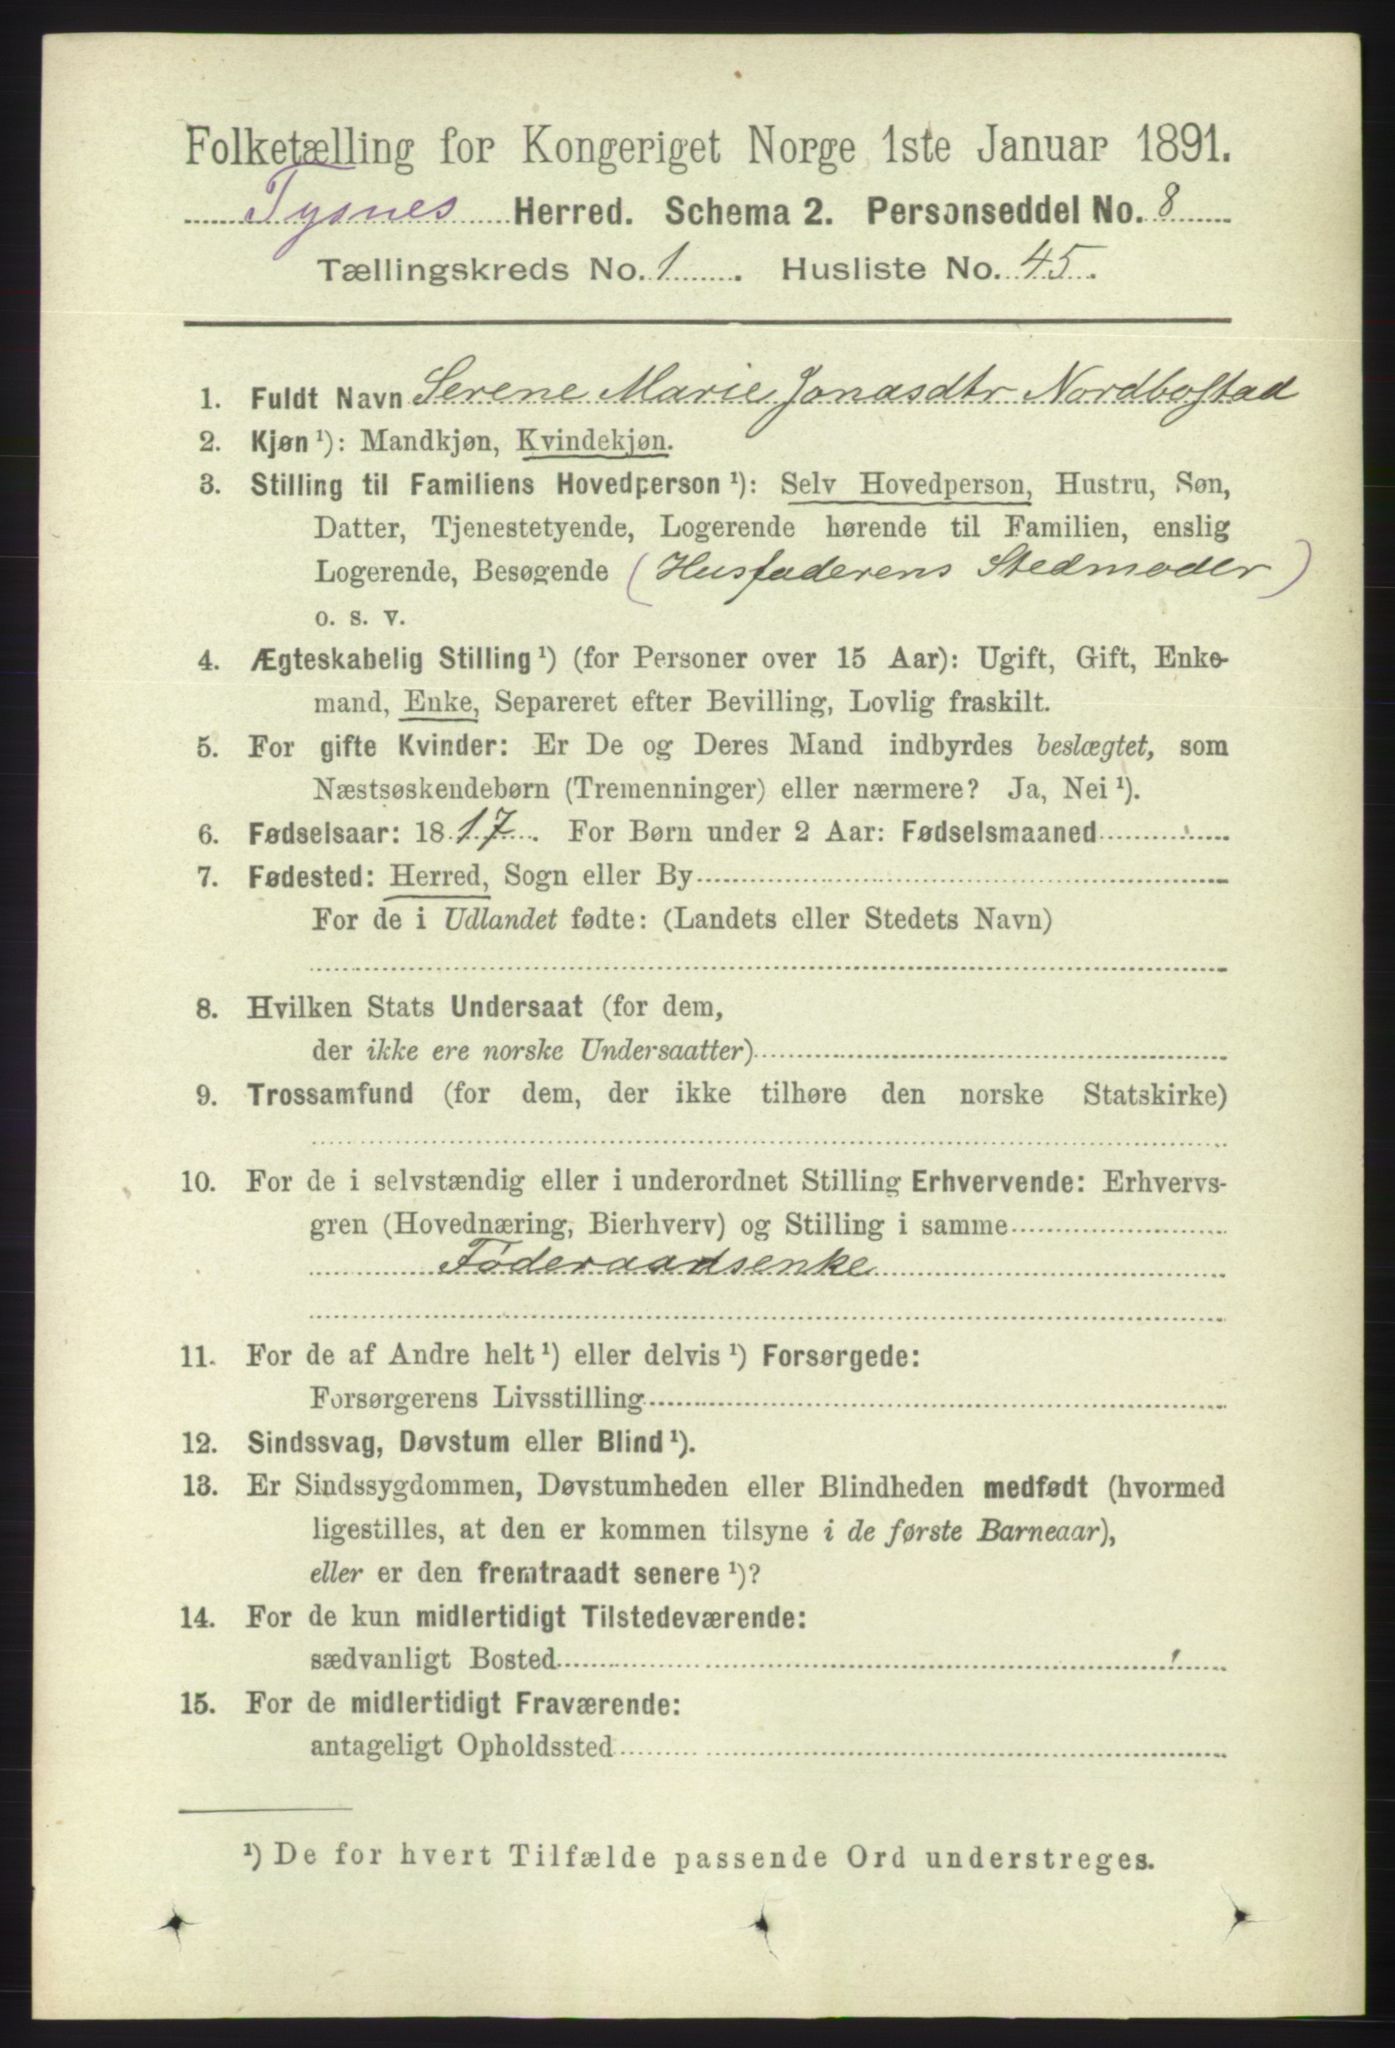 Folketælling for Kongeriget Norge 1ste Januar 1891.
Tysnes Herred. Schema 2. Personseddel No. 8
Tællingskreds No. 1. Husliste No. 45.
1. Fuldt Navn Serene Marie Jonasdtr Nordbostad
2. Kjøn ¹): Mandkjøn, Kvindekjøn.
3. Stilling til Familiens Hovedperson ¹): Selv Hovedperson, Hustru, Søn,
Datter, Tjenestetyende, Logerende hørende til Familien, enslig
Logerende, Besøgende (Husfaderens Stedmoder)
o. s. v.
4. Ægteskabelig Stilling ¹) (for Personer over 15 Aar): Ugift, Gift, Enke-
mand, Enke, Separeret efter Bevilling, Lovlig fraskilt.
5. For gifte Kvinder: Er De og Deres Mand indbyrdes beslægtet, som
Næstsøskendebørn (Tremenninger) eller nærmere? Ja, Nei ¹).
6. Fødselsaar: 1817. For Børn under 2 Aar: Fødselsmaaned
7. Fødested: Herred, Sogn eller By
For de i Udlandet fødte: (Landets eller Stedets Navn)
8. Hvilken Stats Undersaat (for dem,
der ikke ere norske Undersaatter)
9. Trossamfund (for dem, der ikke tilhøre den norske Statskirke)
10. For de i selvstændig eller i underordnet Stilling Erhvervende: Erhvervs-
gren (Hovednæring, Bierhverv) og Stilling i samme
Føderaadsenke
11. For de af Andre helt ¹) eller delvis ¹) Forsørgede:
Forsørgerens Livsstilling
12. Sindssvag, Døvstum eller Blind ¹).
13. Er Sindssygdommen, Døvstumheden eller Blindheden medfødt (hvormed
ligestilles, at den er kommen tilsyne i de første Barneaar),
eller er den fremtraadt senere ¹)?
14. For de kun midlertidigt Tilstedeværende:
sædvanligt Bosted
15. For de midlertidigt Fraværende:
antageligt Opholdssted
¹) De for hvert Tilfælde passende Ord understreges.